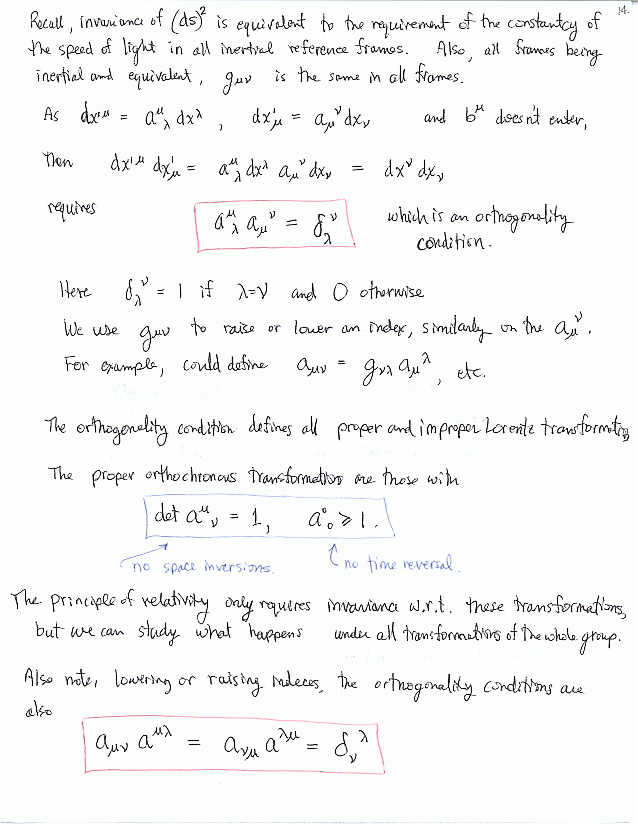 14.
Recall, invariance of (ds)² is equivalent to the requirement of the constantcy of
the speed of light in all inertial reference frames. Also, all frames being
inertial and equivalent, gμν is the same in all frames.
As dx'^μ = a^μ_λ dx^λ , dx'_μ = a_μ^ν dx_ν and b^μ doesn't enter,
Then dx'^μ dx'_μ = a^μ_λ dx^λ a_μ^ν dx_ν = dx^ν dx_ν
requires a^μ_λ a_μ^ν = δ_λ^ν which is an orthogonality
condition.
Here δ_λ^ν = 1 if λ=ν and 0 otherwise
We use gμν to raise or lower an index, similarly on the a_μ^ν.
For example, could define a_μν = g_νλ a_μ^λ, etc.
The orthogonality condition defines all proper and improper Lorentz transformations
The proper orthochronous transformations are those with
det a^μ_ν = 1, a^0_0 ≥ 1.
no space inversions. no time reversal.
The principle of relativity only requires invariance w.r.t. these transformations,
but we can study what happens under all transformations of the whole group.
Also note, lowering or raising indeces, the orthogonality conditions are
also
a_μν a^μλ = a_νμ a^λμ = δ_ν^λ